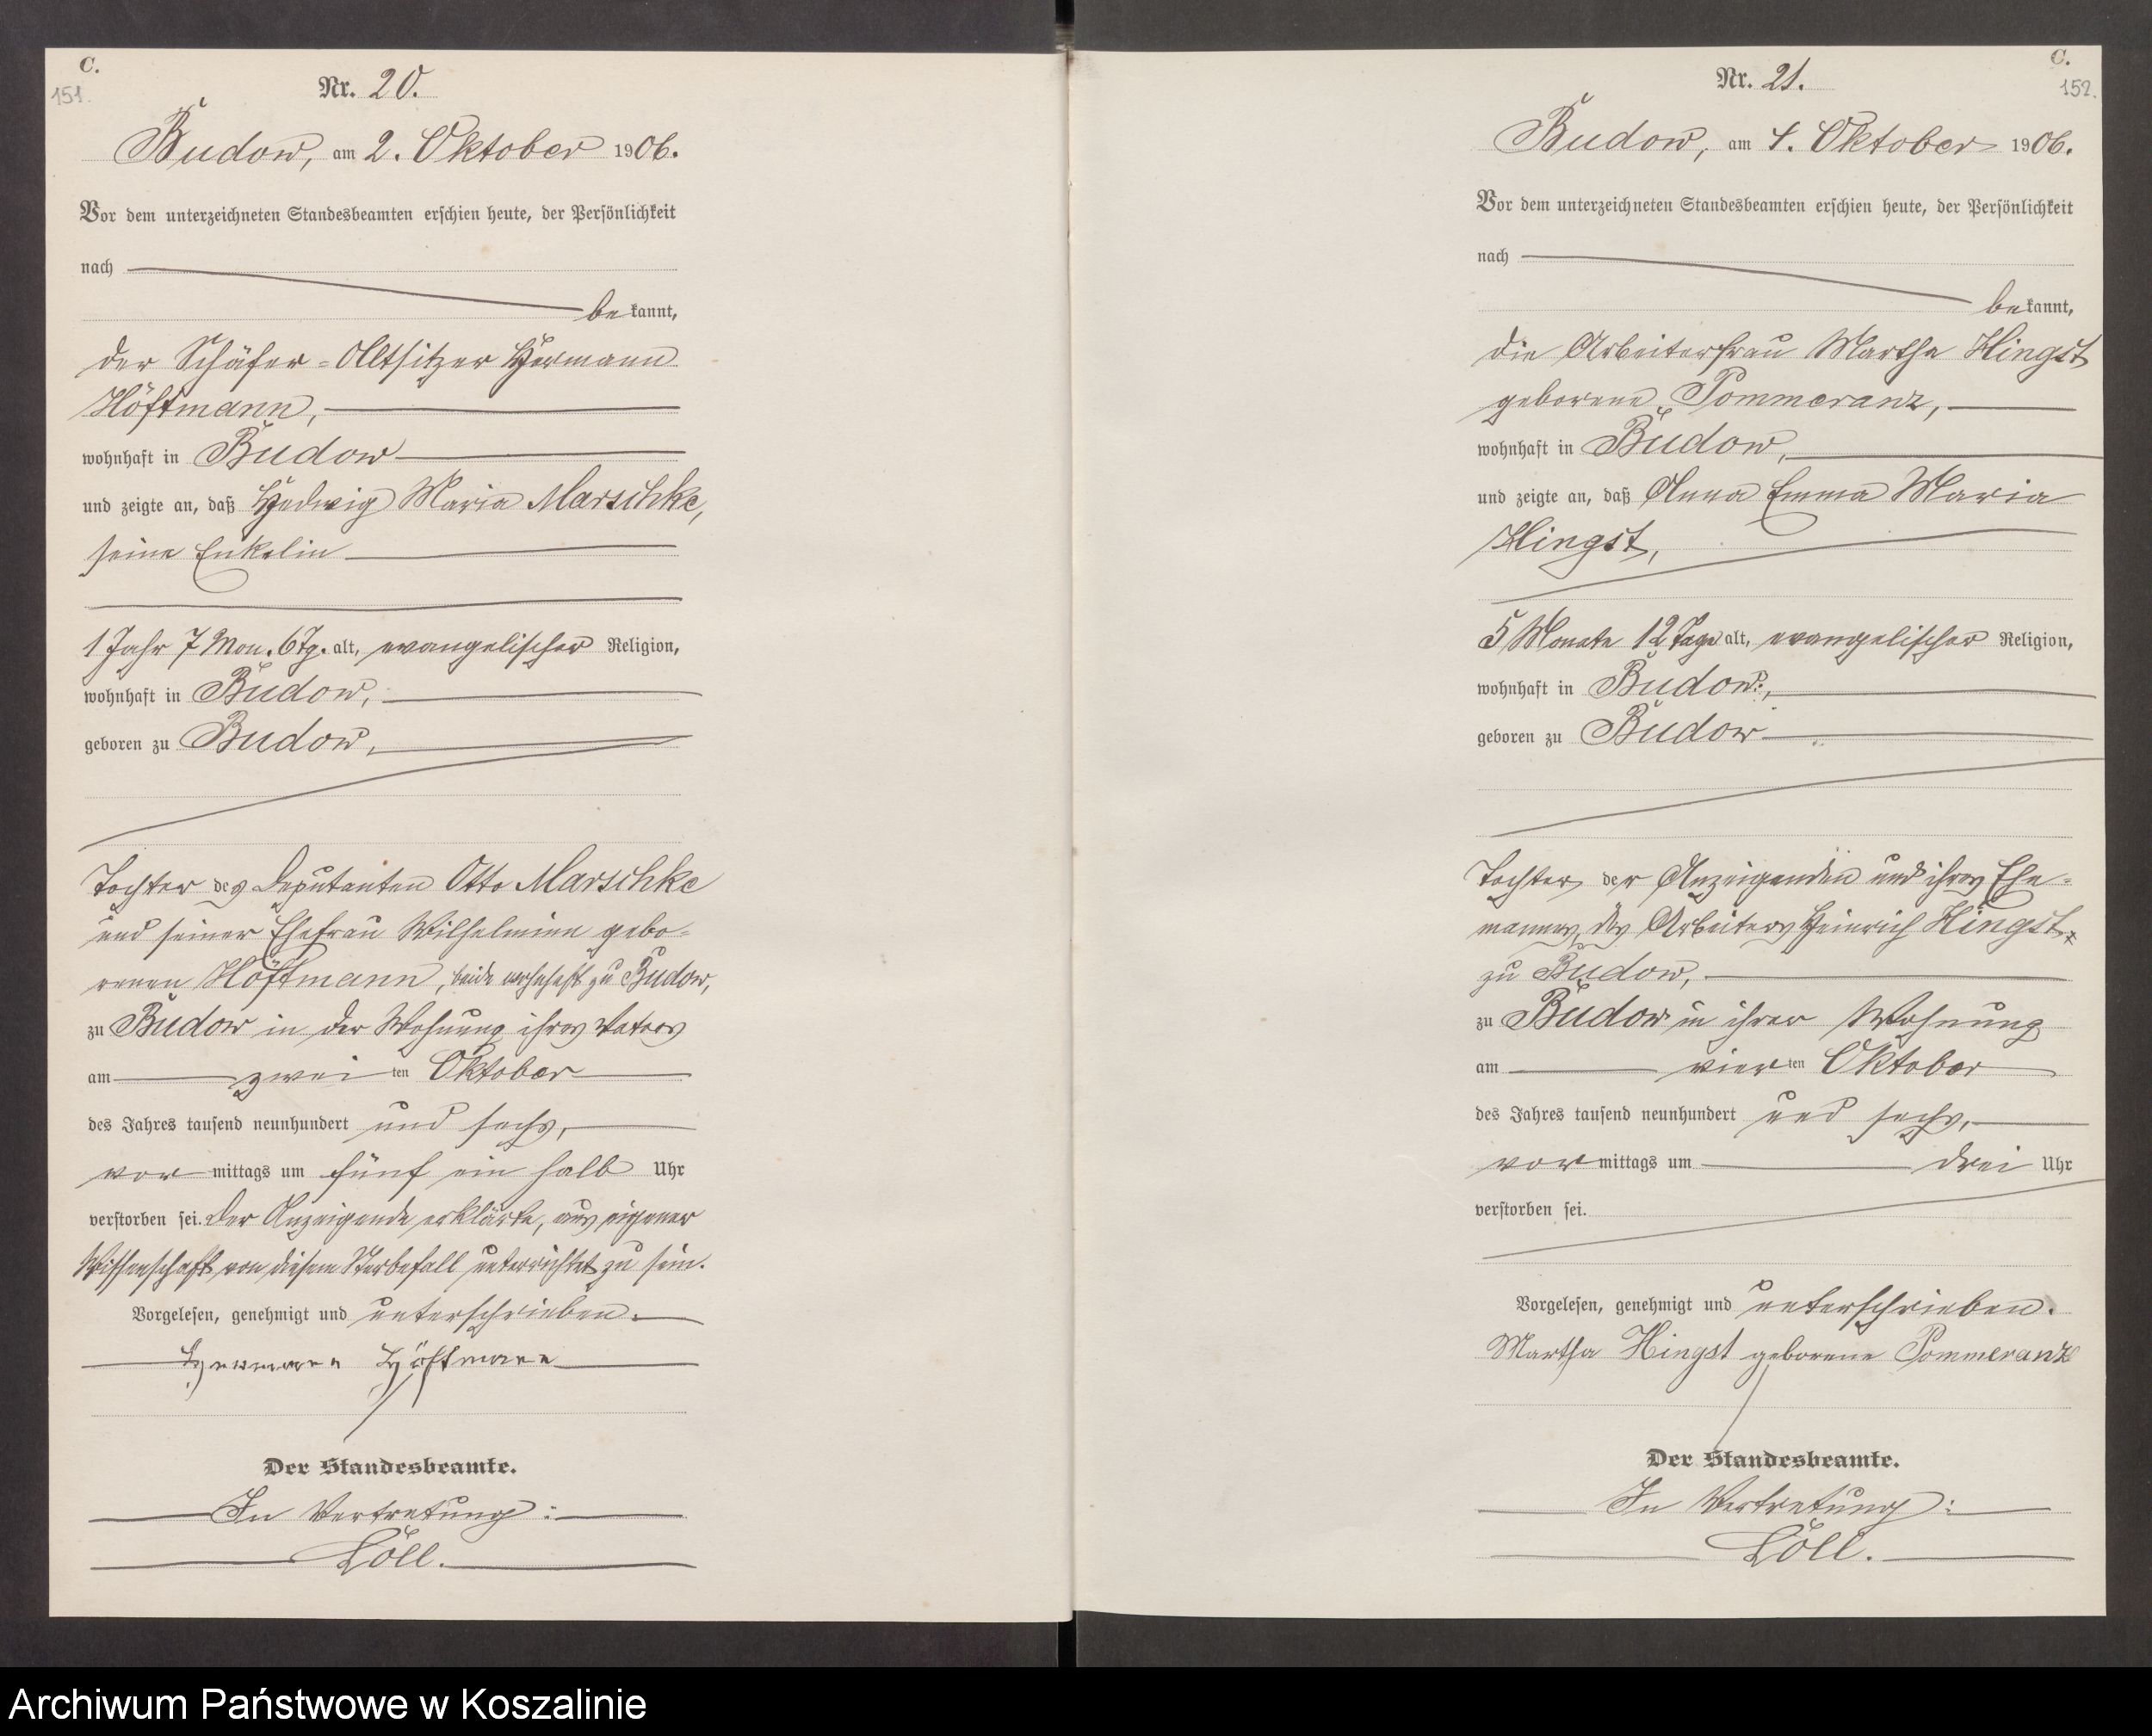 C.
151.
Nr. 20.
Budow, am 2. Oktober 1906.
Vor dem unterzeichneten Standesbeamten erschien heute, der Persönlichkeit
nach
bekannt,
der Schäfer-Altsitzer Hermann
Höftmann,
wohnhaft in Budow
und zeigte an, daß Hedwig Maria Marschke,
seine Enkelin
1 Jahr 7 Mon. 6 Tg. alt, evangelischer Religion,
wohnhaft in Budow,
geboren zu Budow,
Tochter des Deputanten Otto Marschke
und seiner Ehefrau Wilhelmine gebo-
renen Höftmann, beide wohnhaft zu Budow,
zu Budow in der Wohnung ihres Vaters
am zweiten Oktober
des Jahres tausend neunhundert und sechs,
vormittags um fünf ein halb Uhr
verstorben sei. Der Anzeigende erklärte, aus eigener
Wissenschaft von diesem Sterbefall unterrichtet zu sein.
Vorgelesen, genehmigt und unterschrieben.
Hermann Höftmann
Der Standesbeamte.
In Vertretung:
Löll.
C.
152.
Nr. 21.
Budow, am 4. Oktober 1906.
Vor dem unterzeichneten Standesbeamten erschien heute, der Persönlichkeit
nach
bekannt,
die Arbeiterfrau Martha Hingst
geborene Pommeranz,
wohnhaft in Budow,
und zeigte an, daß Anna Emma Maria
Hingst,
5 Monate 12 Tage alt, evangelischer Religion,
wohnhaft in Budow,
geboren zu Budow
Tochter der Anzeigenden und ihres Ehe-
mannes, des Arbeiters Heinrich Hingst
zu Budow,
zu Budow in ihrer Wohnung
am vierten Oktober
des Jahres tausend neunhundert und sechs,
vormittags um drei Uhr
verstorben sei.
Vorgelesen, genehmigt und unterschrieben.
Martha Hingst geborene Pommeranz
Der Standesbeamte.
In Vertretung:
Löll.
Archiwum Państwowe w Koszalinie